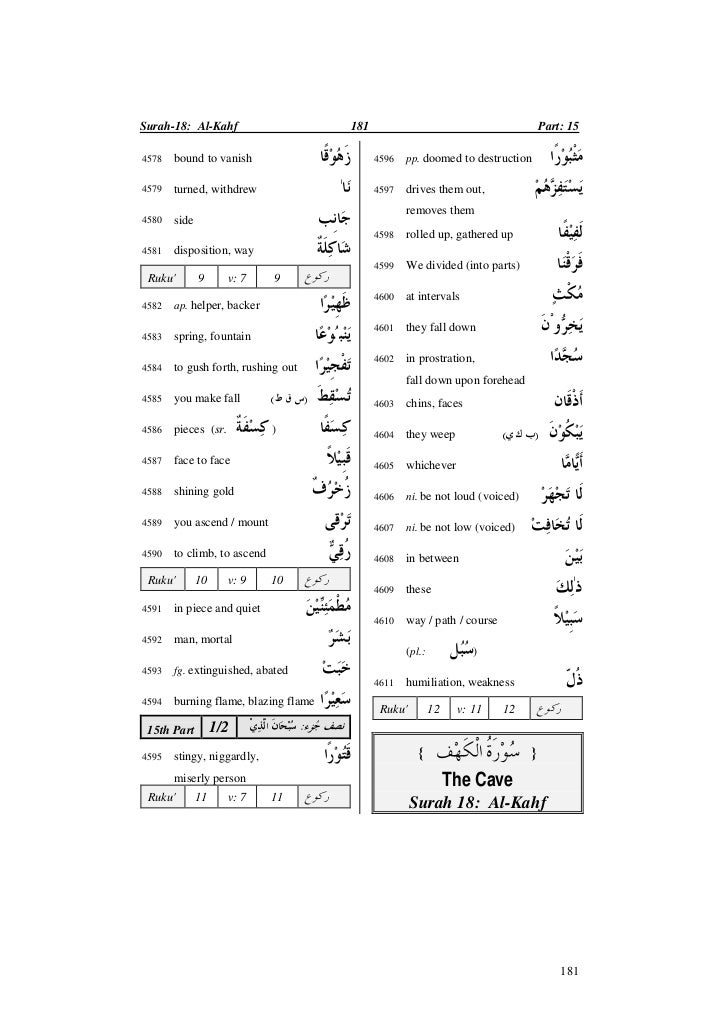 Surah-18: Al-Kahf 181 Part: 15
4578 bound to vanish زَهُوْقًا
4579 turned, withdrew نَاٰ
4580 side جَانِبٍ
4581 disposition, way شَاكِلَةٌ
Ruku' 9 v: 7 9 ركوع
4582 ap. helper, backer ظَهِيْرًا
4583 spring, fountain يَنْبُوْعًا
4584 to gush forth, rushing out تَفْجِيْرًا
4585 you make fall (س ق ط) تُسْقِطَ
4586 pieces (sr. كِسْفَةٌ ) كِسَفًا
4587 face to face قَبِيْلاً
4588 shining gold زُخْرُفٌ
4589 you ascend / mount تَرْقٰى
4590 to climb, to ascend رُقِيٌّ
Ruku' 10 v: 9 10 ركوع
4591 in piece and quiet مُطْمَئِنِّيْنَ
4592 man, mortal بَشَرٌ
4593 fg. extinguished, abated خَبَتْ
4594 burning flame, blazing flame سَعِيْرًا
15th Part 1/2 نصف جُزء: سُبْحَانَ الَّذِيْ
4595 stingy, niggardly, قَتُوْرًا
miserly person
Ruku' 11 v: 7 11 ركوع
4596 pp. doomed to destruction مَثْبُوْرًا
4597 drives them out, يَسْتَفِزَّهُمْ
removes them
4598 rolled up, gathered up لَفِيْفًا
4599 We divided (into parts) فَرَقْنَا
4600 at intervals مُكْثٍ
4601 they fall down يَخِرُّوْنَ
4602 in prostration, سُجَّدًا
fall down upon forehead
4603 chins, faces أَذْقَان
4604 they weep (ب ك ي) يَبْكُوْنَ
4605 whichever أَيًّامَّا
4606 ni. be not loud (voiced) لَا تَجْهَرْ
4607 ni. be not low (voiced) لَا تُخَافِتْ
4608 in between بَيْنَ
4609 these ذٰلِكَ
4610 way / path / course سَبِيْلاً
(pl.: سُبُل)
4611 humiliation, weakness ذُلّ
Ruku' 12 v: 11 12 ركوع
{ سُوْرَةُ الْكَهْف }
The Cave
Surah 18: Al-Kahf
181